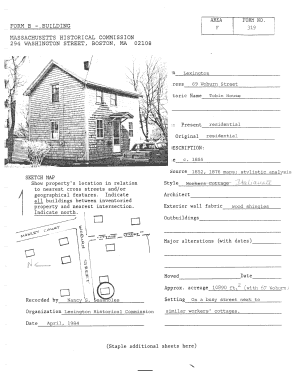 AREA
FORM NO.
FORM B - BUILDING
P
319
MASSACHUSETTS HISTORICAL COMMISSION
294 WASHINGTON STREET, BOSTON, MA 02108
Lexington
ress 69 Woburn Street
toric Name Tobin House
Present residential
Original residential
ESCRIPTION:
e c. 1885
source 1852, 1876 maps; stylistic analysis
SKETCH MAP
Show property's location in relation
to nearest cross streets and/or
geographical features. Indicate
all buildings between inventoried
property and nearest intersection.
Indicate north.
Style Workers Cottage
Architect
Exterior wall fabric wood shingles
Outbuildings
COURT
WOBURN
STREET
Major alterations (with dates)
Moved Date
Approx. acreage
Recorded by Nancy S.
Setting On a busy street next to
Organization Lexington Historical Commission
similar workers' cottages.
Date April, 1984
(Staple additional sheets here)